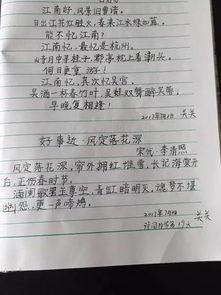 江南好，风景旧曾谙。
日出江花红胜火，春来江水绿如蓝。
能不忆江南？
江南忆，最忆是杭州。
山寺月中寻桂子，郡亭枕上看潮头。
何日更重游！
江南忆，其次忆吴宫。
吴酒一杯春竹叶，吴娃双舞醉芙蓉。
早晚复相逢！
2017年7月1日 关关
好事近·风定落花深
宋代·李清照
风定落花深，帘外拥红堆雪。长记海棠开
后，正伤春时节。
酒阑歌罢玉尊空，青缸暗明灭。魂梦不堪
幽怨，更一声啼鴂。
关关
2017年7月2日